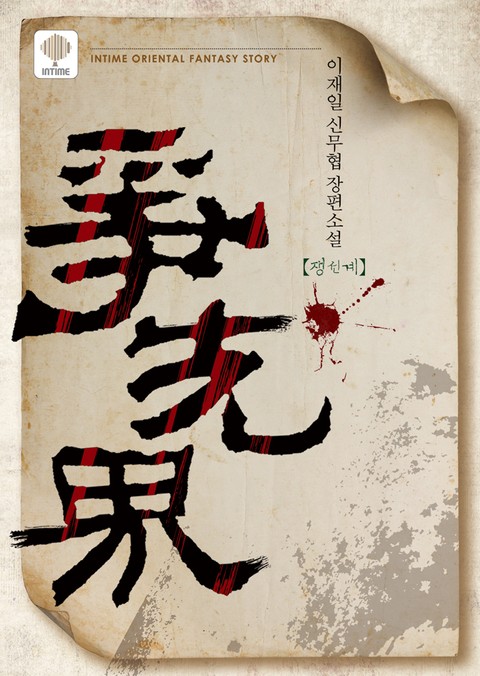 INTIME
INTIME ORIENTAL FANTASY STORY
이재일 신무협 장편소설
【쟁선계】
爭先界